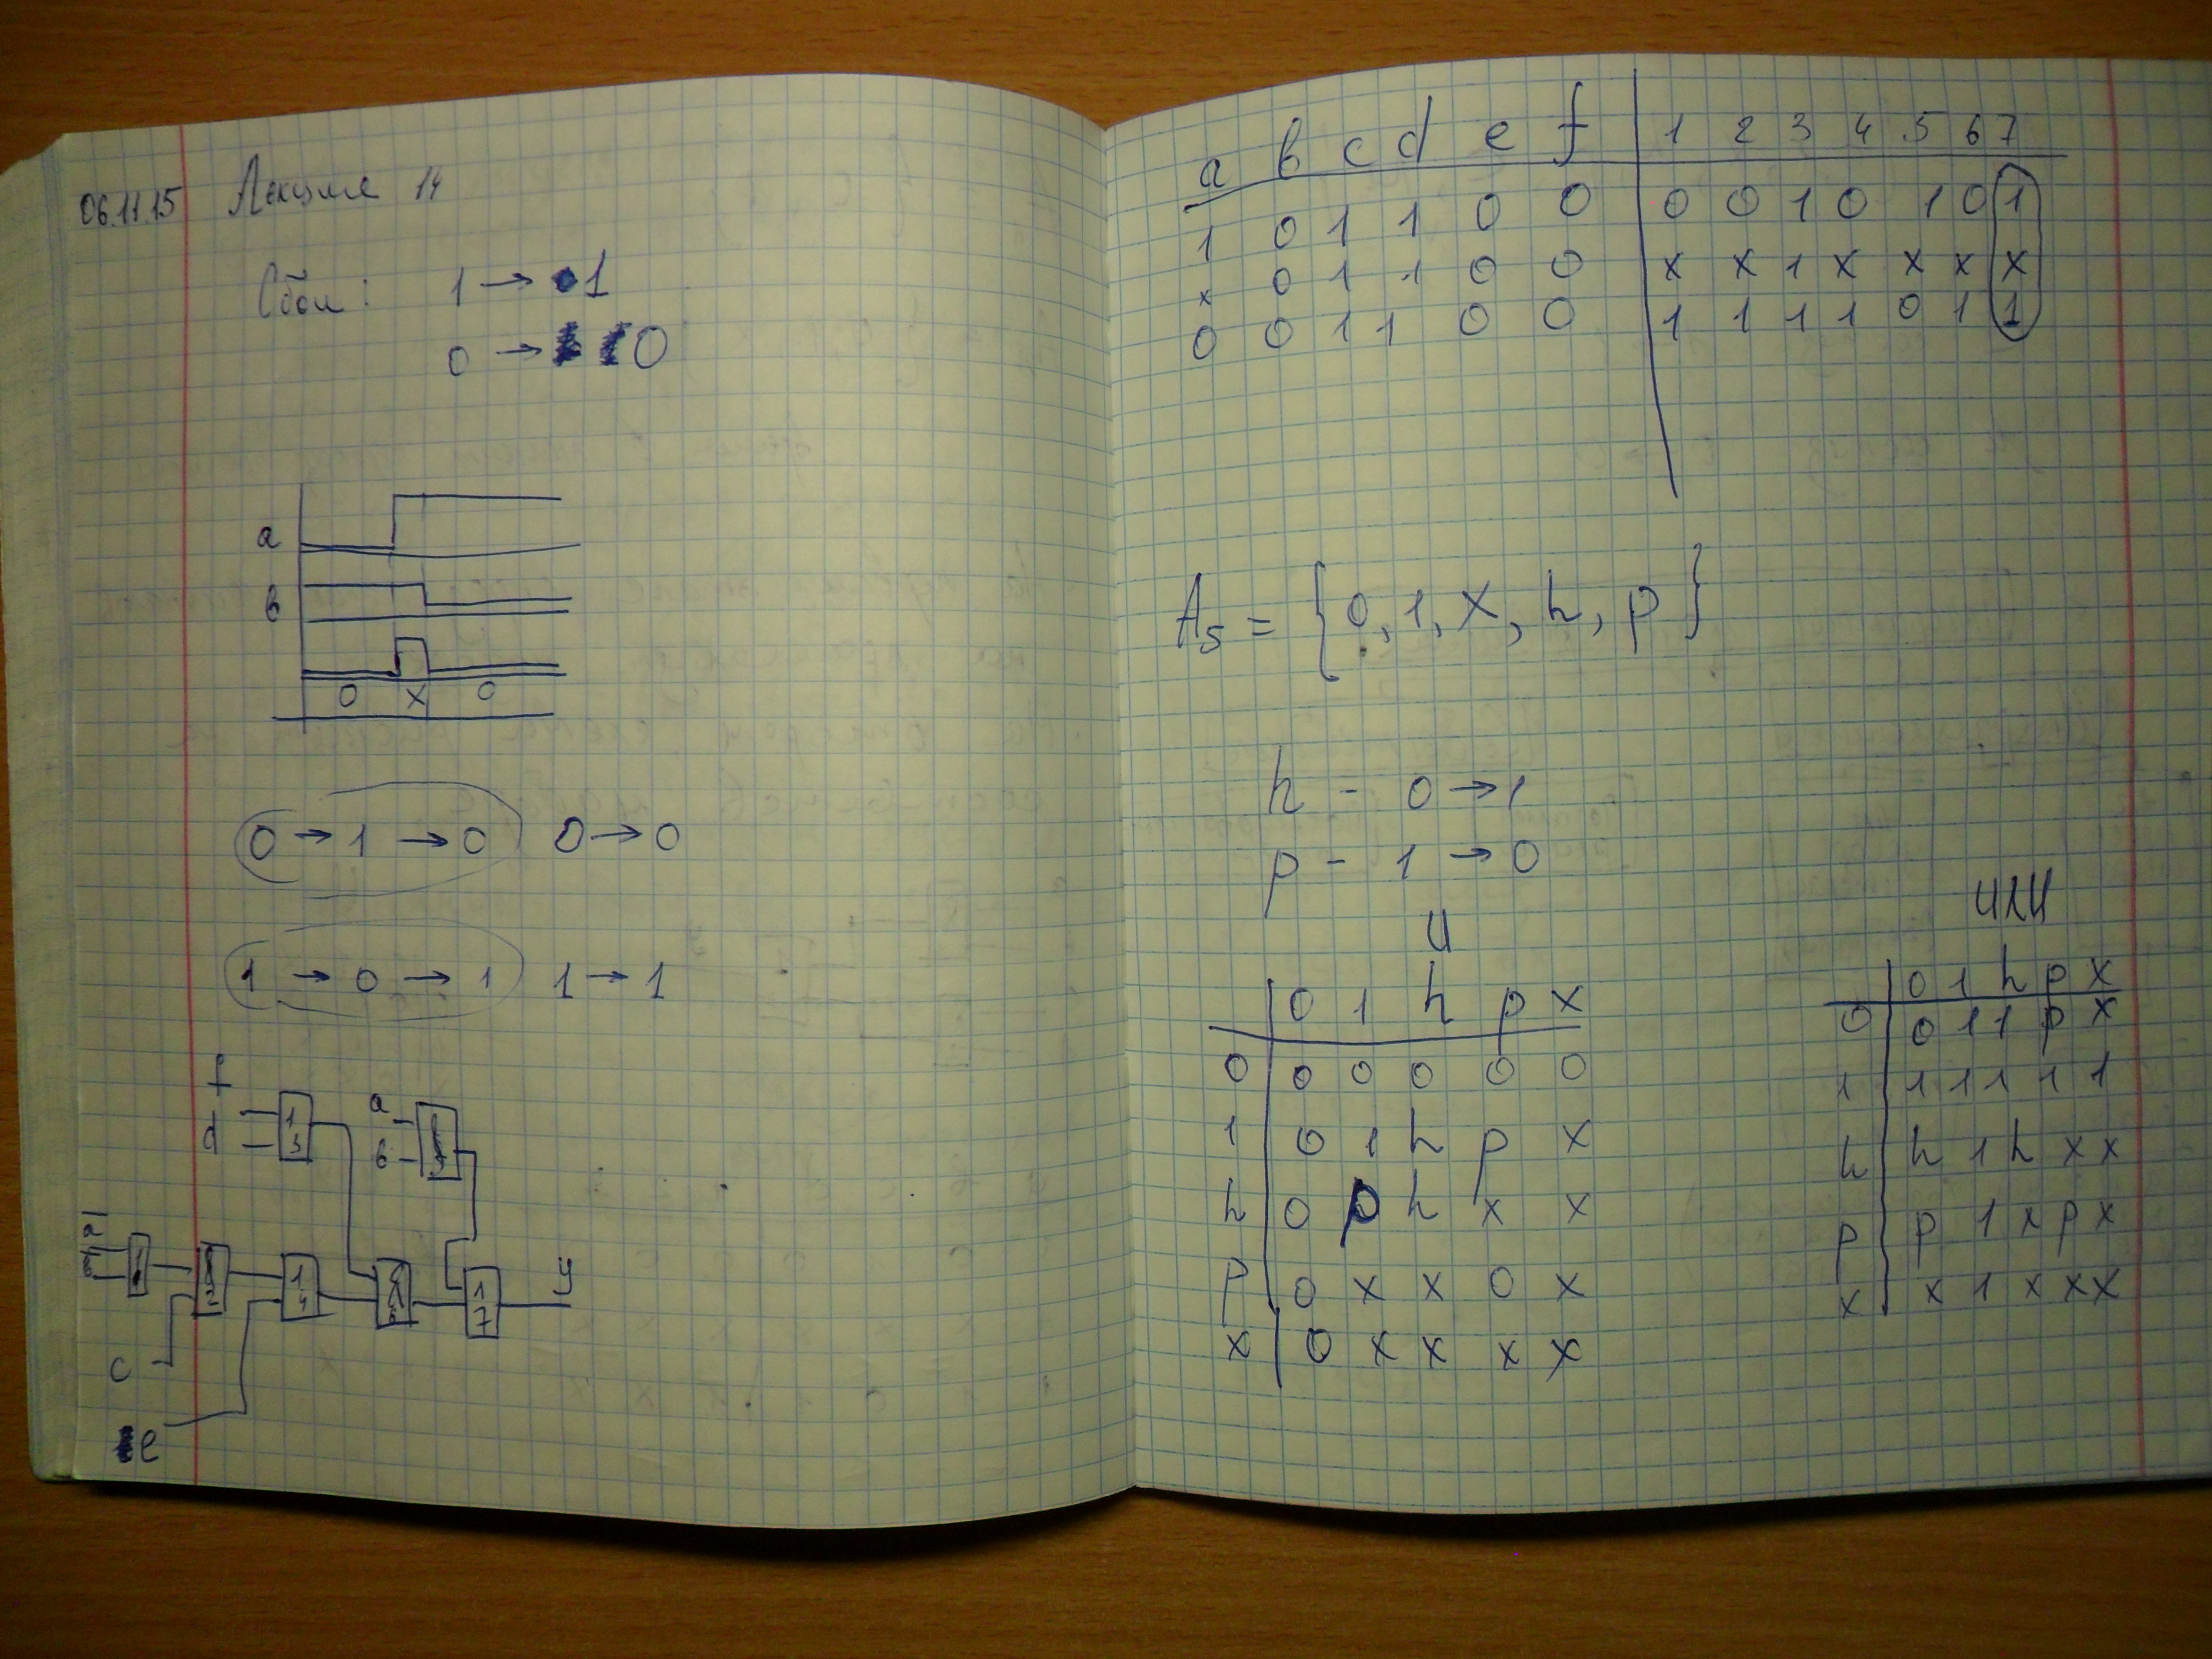 06.11.15 Лекция 14
Сбои: 1 → 1
0 → 0
a
b
0 x 0
0 → 1 → 0 0 → 0
1 → 0 → 1 1 → 1
f
d
1
3
a
b
1
4
1
7
y
c
e
a b c d e f 1 2 3 4 5 6 7
1 0 1 1 0 0 0 0 1 0 1 0 1
x 0 1 1 0 0 x x 1 x x x x
0 0 1 1 0 0 1 1 1 1 0 1 1
A5 = {0, 1, X, h, p}
h - 0 → 1
p - 1 → 0
И
0 1 h p x
0 0 0 0 0 0
1 0 1 h p x
h 0 p h x x
p 0 x x 0 x
x 0 x x x x
ИЛИ
0 1 h p x
0 0 1 1 p x
1 1 1 1 1 1
h h 1 h x x
p p 1 x p x
x x 1 x x x